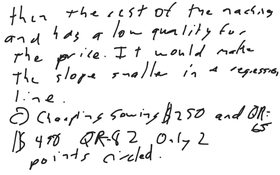 then the rest of the maching
and has a low quality for
the price. It would make
the slope smaller in a regression
line.
c) Cheaping Sowing $250 and QR=
65
$490 QR=82 Only 2
points circled.